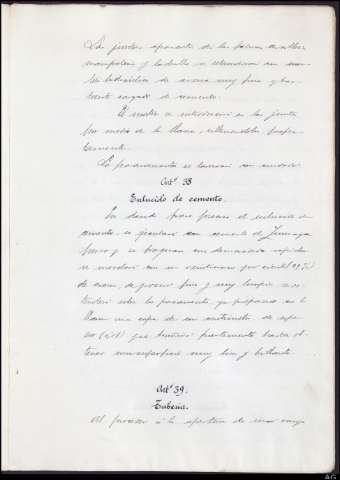 Las juntas aparentes de las fábricas de sillería
mampostería y ladrillo se retundirán con mor-
tero hidráulico de arena muy fina y bas-
tante cargado de cemento.
El mortero se introducirá en las juntas
por medio de la llana, rellenándolas perfec-
tamente.
Los paramentos se
Artº. 38
Enlucido de cemento.
En donde fuere preciso el enlucido de
cemento, se ejecutará con cemento de Zumaya
puro y si fraguara con demasiada rapidez
se mezclará con un
de arena, de grano fino y muy limpia, ex-
tendiéndose sobre los paramentos, ya preparados con la
llana una capa de un centímetro de espe-
sor (0,01) que bruñirá fuertemente hasta ob-
tener una superficie muy lisa y brillante
Artº 39.
Tubería.
Al proceder á la apertura de una zanja
AG